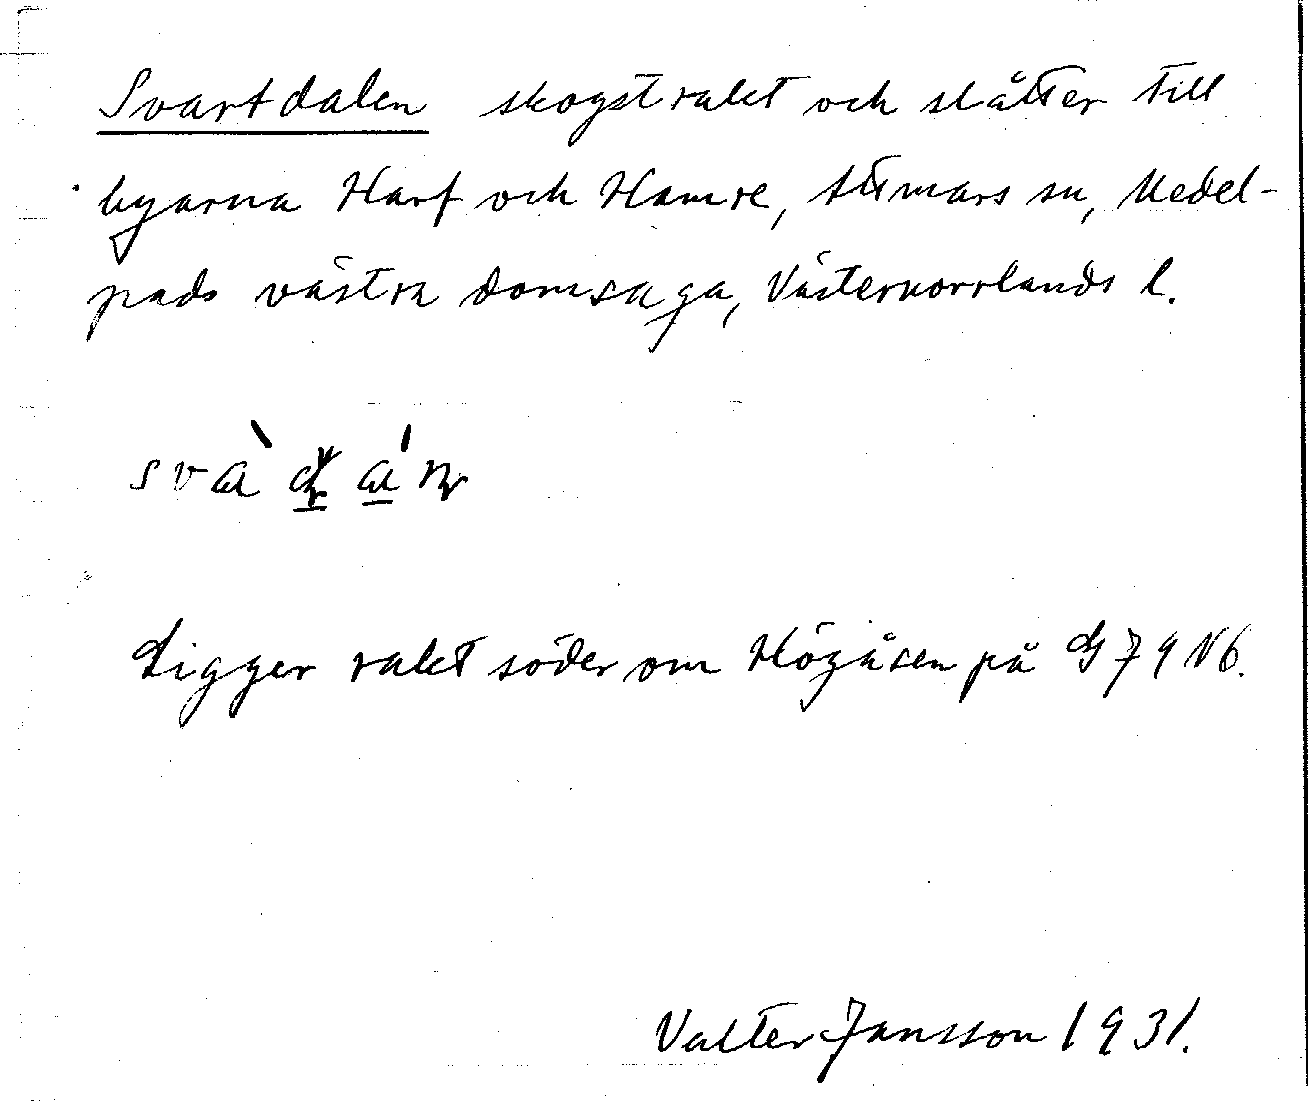 Svartdalen skogstrakt och slåtter till
byarna Harf och Hamre, Attmars sn, Medel-
pads västra domsaga, Västernorrlands l.
Ligger rakt söder om Högåsen på G 79 N6.
Valter Jansson 1931.